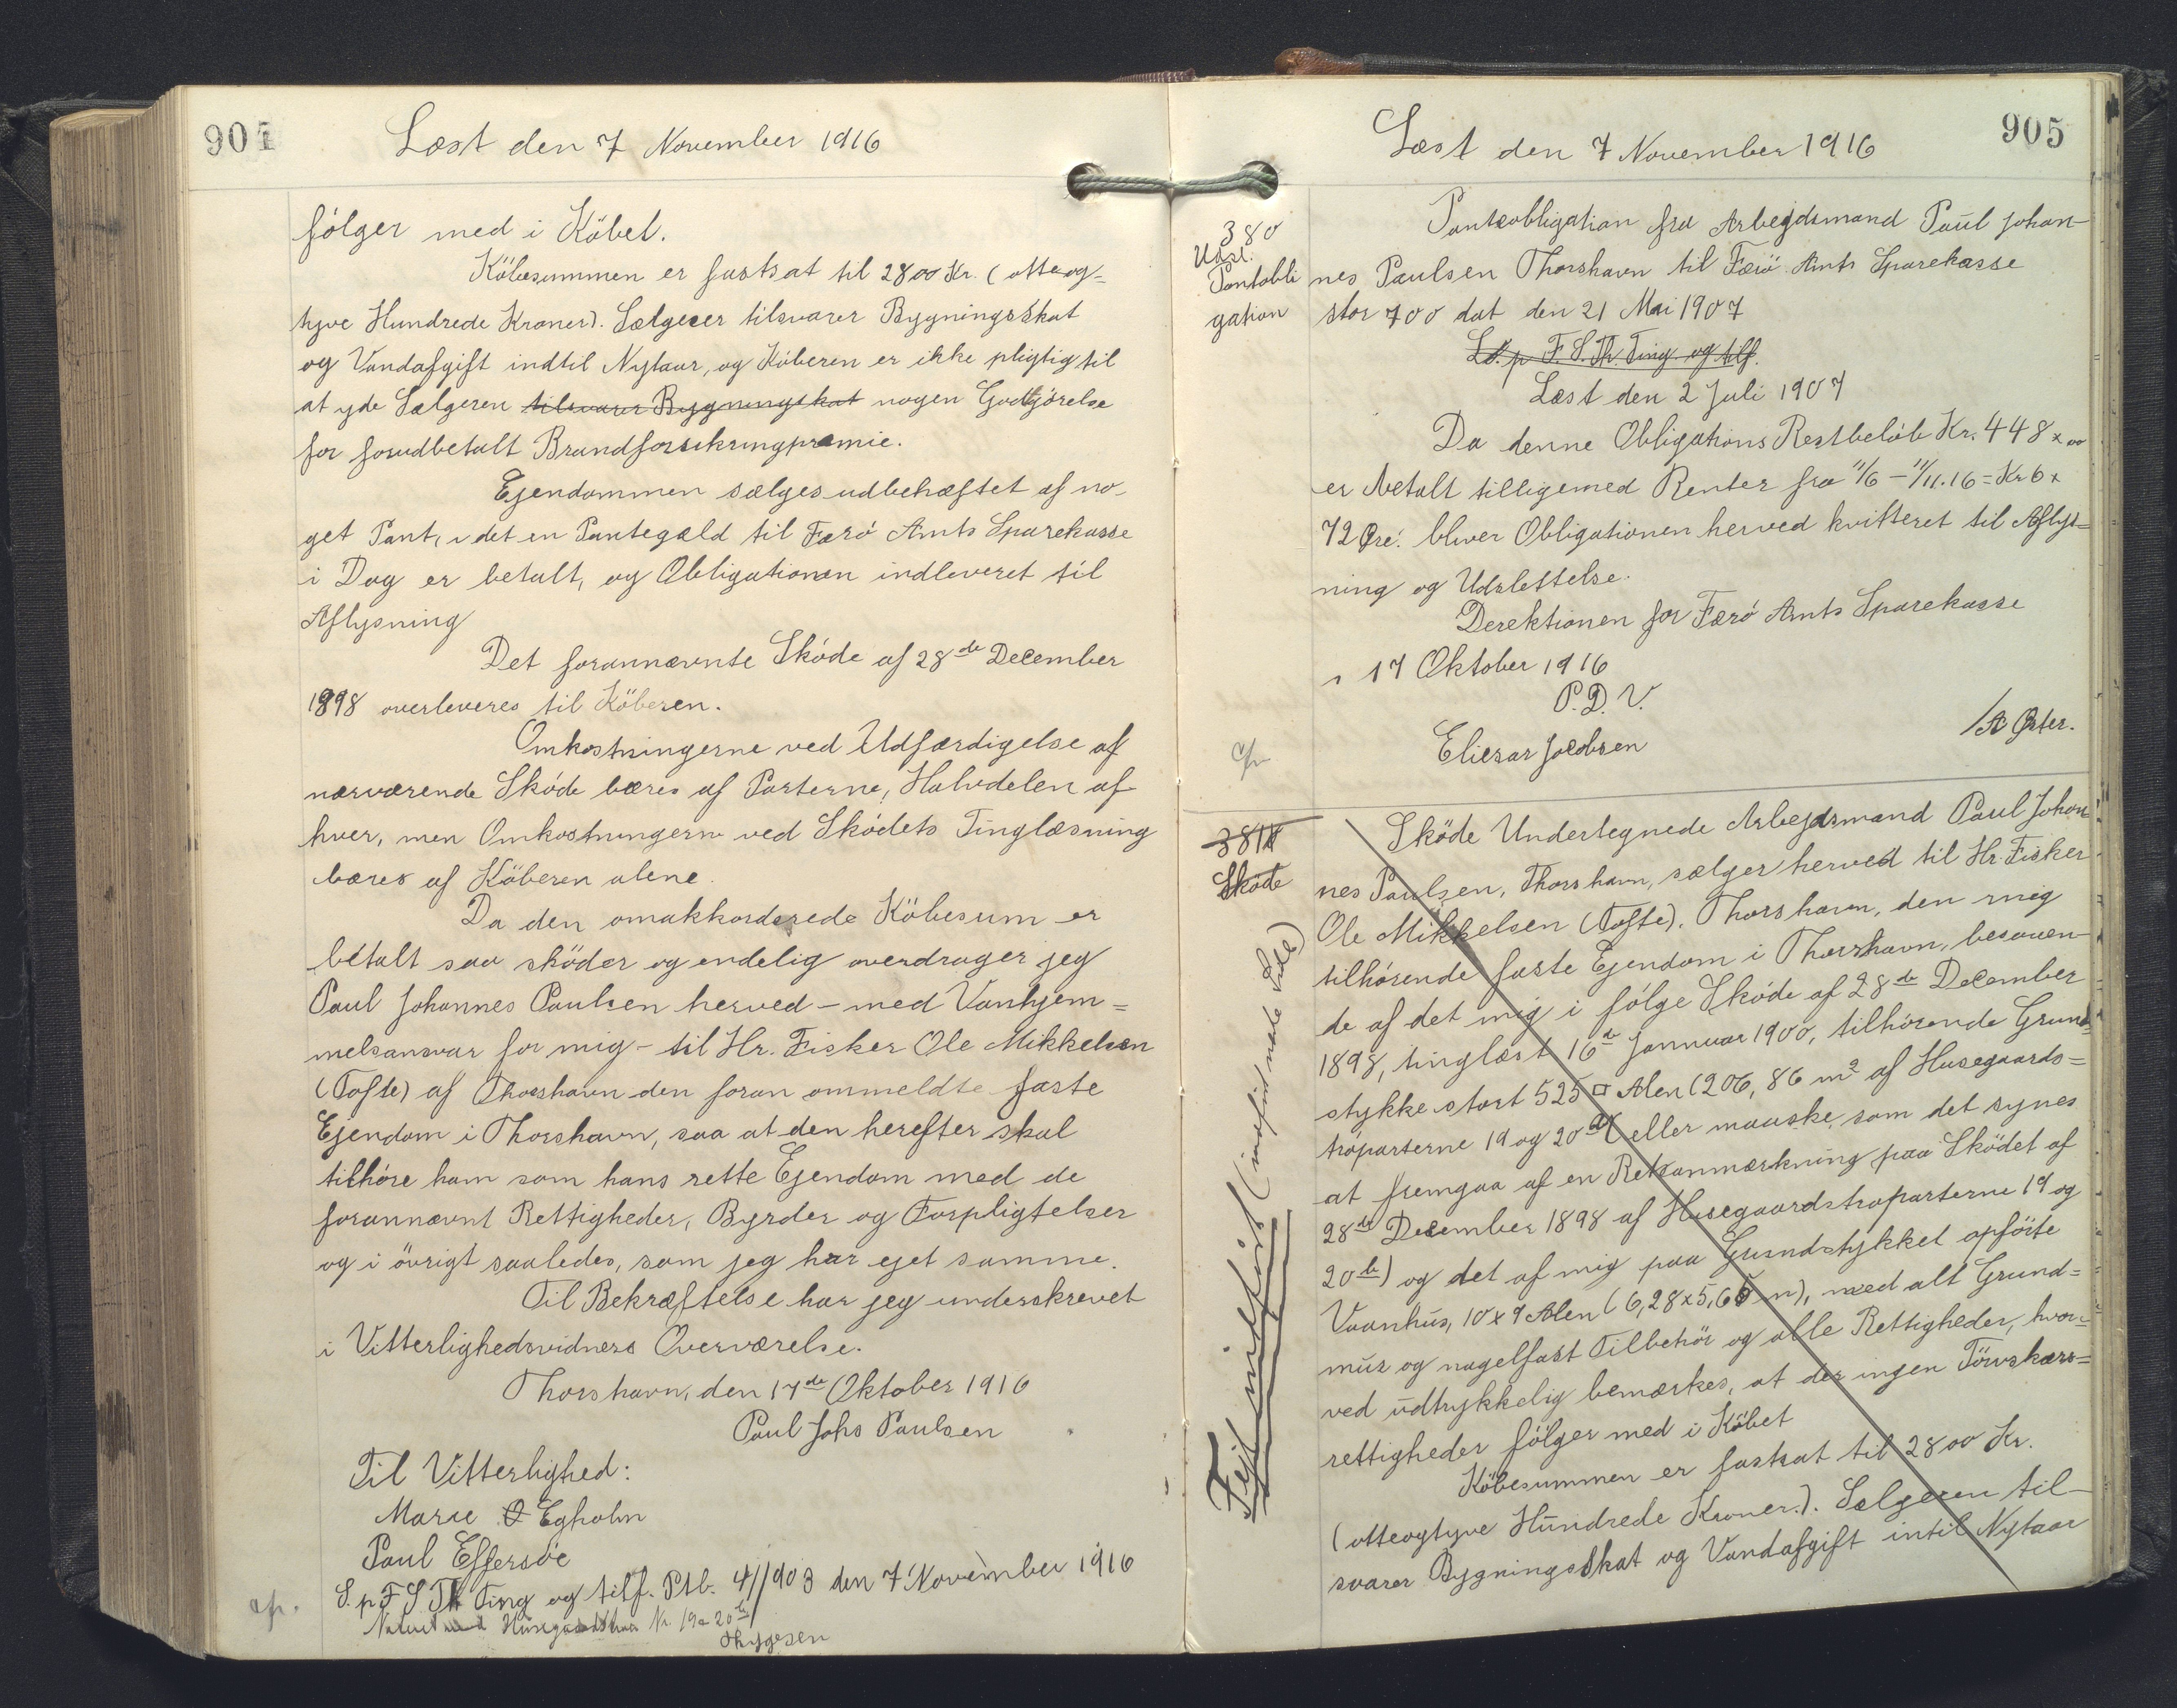 904
Læst den 7 November 1916
fólger med i Köbet.
Köbesummen er fastsat til 2800 Kr. (otteog=
tyve Hundrede Kroner). Sælgeren tilsvarer Bygningsskat
og Vandafgift indtil Nytaar, og Köberen er ikke pligtig til
at yde Sælgeren tilsvarer Bygningskat nogen Godtgörelse
for forudbetalt Brandforsikringpræmie.
Ejendommen sælges udbehæftet af no-
get Pant, i det en Pantegæld til Færö Amts Sparekasse
i Dag er betalt, og Obligationen indleveret til
Aflysning
Det forannævnte Sköde af 28de December
1898 overleveres til Köberen.
Omkostningerne ved Udfærdigelse af
nærværende Sköde bæres af Parterne, Halvdelen af
hver, men Omkostningerne ved Sködets Tinglæsning
bæres af Köberen alene.
Da den omakkorderede Köbesum er
betalt saa sköder og endelig overdrager jeg
Paul Johannes Paulsen herved – med Vanhjem=
melsansvar for mig – til Hr. Fisker Ole Mikkelsen
(Tofte) af Thorshavn den foran ommeldte faste
Ejendom i Thorshavn, saa at den herefter skal
tilhöre ham som hans rette Ejendom med de
forannævnt Rettigheder, Byrder og Forpligtelser
og i övrigt saaledes, som jeg har ejet samme.
Til Bekræftelse har jeg underskrevet
i Vitterlighedsvidners Overværelse.
Thorshavn, den 17de Oktober 1916
Paul Johs Paulsen
Til Vitterlighed:
Marie Egholm
Paul Effersöe
L. p. F. S. Th Ting og tilf. Ptb. 4//903 den 7 November 1916
Nr. 19 a 20b
Thygesen
905
Læst den 7 November 1916
380
Udsl.
Pantobli
gation
Panteobligation fra Arbejdsmand Paul Johan-
nes Paulsen Thorshavn til Færö Amts Sparekasse
stor 700 dat den 21 Mai 1907
L. p F. S. Th. Ting og tilf.
Læst den 2 Juli 1907
Da denne Obligations Restbelöb Kr. 448 x 00
er betalt tilligemed Renter fra 11/6 – 11/11.16 = Kr 6 x
72 Öre. bliver Obligationen herved kvitteret til Aflys=
ning og Udslettelse.
Derektionen for Færö Amts Sparekasse
, 17 Oktober 1916
P. D. V.
Eliesar Jacobsen
/A Öster.
381
Sköde
Fejl indfört (indfört næste Side)
Sköde Undertegnede Arbejdsmand Paul Johan
nes Paulsen, Thorshavn, sælger herved til Hr. Fisker
Ole Mikkelsen (Tofte), Thorshavn, den mig
tilhörende faste Ejendom i Thorshavn, bestaaen-
de af det mig i fölge Sköde af 28de December
1898, tinglæst 16de Jannuar 1900, tilhörende Grund
stykke stort 525 □ Alen (206,86 m² af Husegaards=
troparterne 19 og 20b (eller maaske, som det synes
at fremgaa af en Retsanmærkning paa Sködet af
28de December 1898 af Husegaardstroparterne 19 og
20b) og det af mig paa Grundstykket opförte
Vaanhus, 10 x 9 Alen (6,28 x 5,65 m), med alt Grund=
mur og nagelfast Tilbehör og alle Rettigheder, hvor=
ved udtrykkelig bemærkes, at der ingen Törvskærs=
rettigheder fölger med i Köbet
Köbesummen er fastsat til 2800 Kr.
(otteogtyve Hundrede Kroner.). Sælgeren til-
svarer Bygningsskat og Vandafgift intil Nytaar